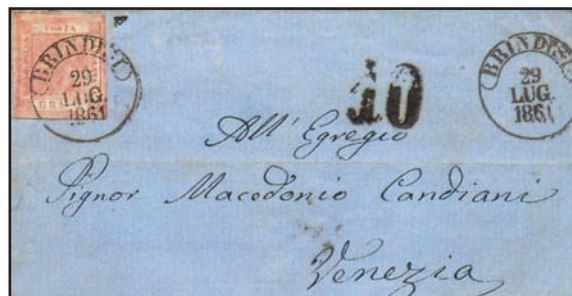 POSTA
BRINDISI
29
LUG.
1861
10
BRINDISI
29
LUG.
1861
All' Egregio
Signor Macedonio Candiani
Venezia